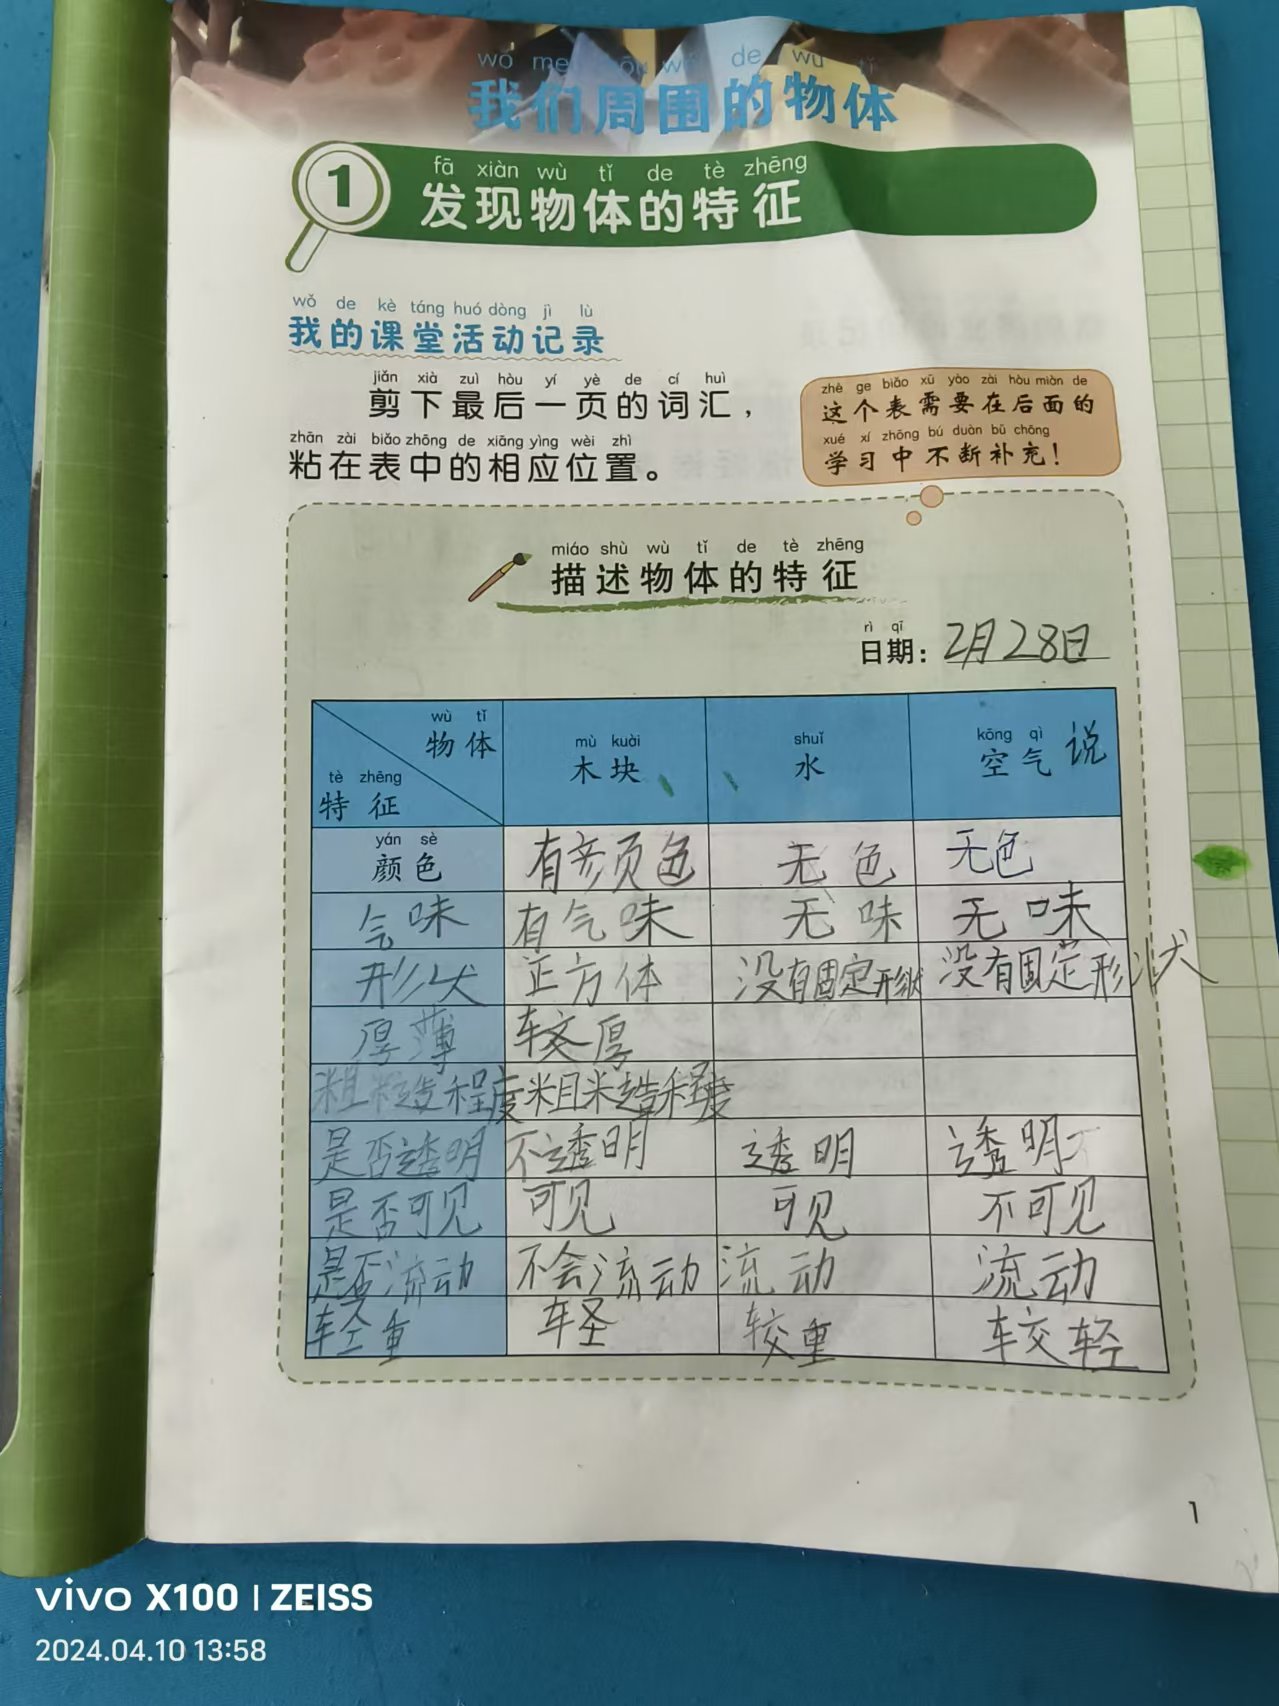 wǒ me zhōu wéi de wù tǐ
我们周围的物体
fā xiàn wù tǐ de tè zhēng
1 发现物体的特征
wǒ de kè táng huó dòng jì lù
我的课堂活动记录
jiǎn xià zuì hòu yí yè de cí huì
剪下最后一页的词汇，
zhān zài biǎo zhōng de xiāng yìng wèi zhì
粘在表中的相应位置。
zhè ge biǎo xū yào zài hòu miàn de
这个表需要在后面的
xué xí zhōng bú duàn bǔ chōng
学习中不断补充！
miáo shù wù tǐ de tè zhēng
描述物体的特征
rì qī
日期：2月28日
wù tǐ
物体
tè zhēng
特征
mù kuài
木块
shuǐ
水
kōng qì
空气 说
yán sè
颜色 有颜色 无色 无色
气味 有气味 无味 无味
形状 正方体 没有固定形状 没有固定形状
厚薄 较厚
粗糙程度 粗糙程度
是否透明 不透明 透明 透明
是否可见 可见 可见 不可见
是否流动 不会流动 流动 流动
轻重 轻 较重 较轻
1
vivo X100 | ZEISS
2024.04.10 13:58